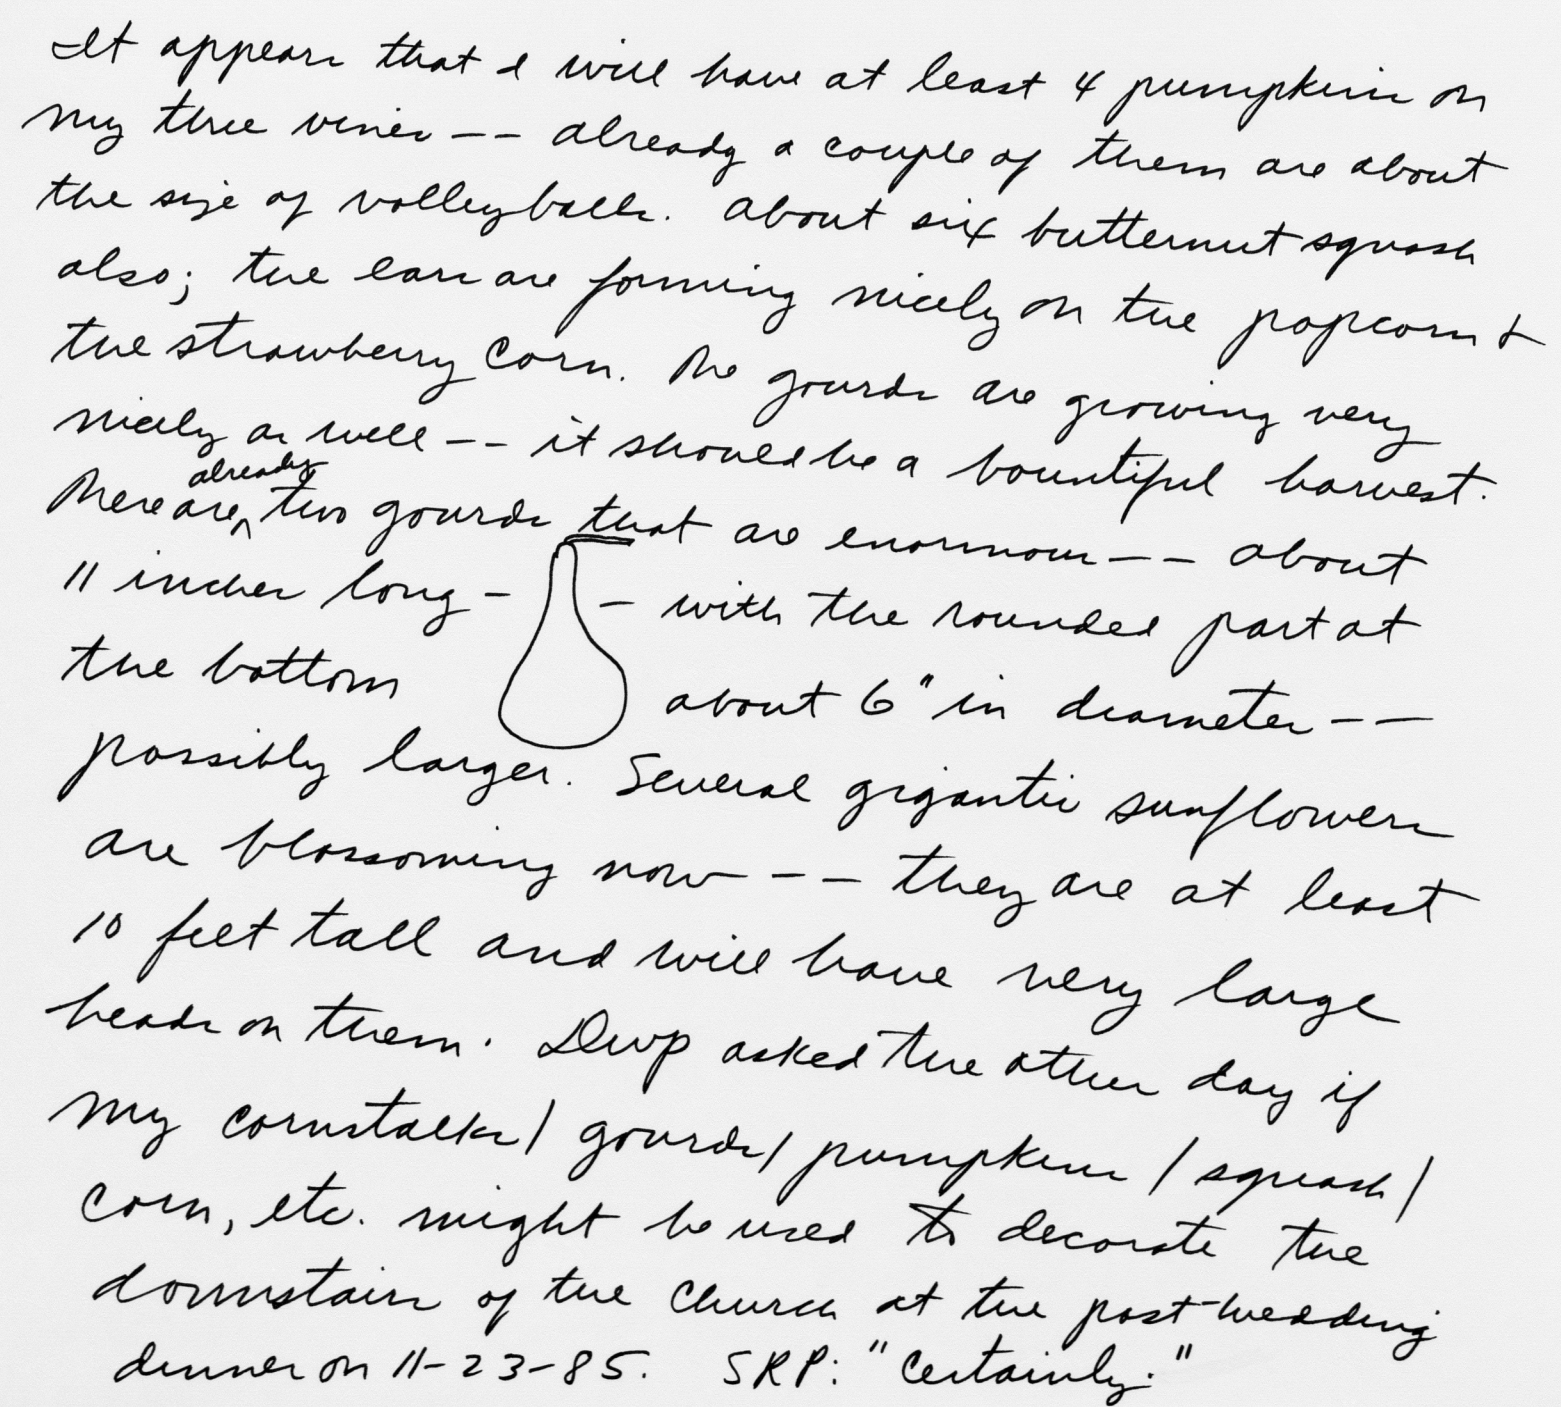 It appears that I will have at least 4 pumpkins on
my three vines -- already a couple of them are about
the size of volleyballs. About six butternut squash
also; the ears are forming nicely on the popcorn &
the strawberry corn. The gourds are growing very
nicely as well -- it should be a bountiful harvest.
There are ^already two gourds that are enormous -- about
11 inches long - - with the rounded part at
the bottom about 6" in diameter --
possibly larger. Several gigantic sunflowers
are blossoming now --- they are at least
10 feet tall and will have very large
heads on them. DWP asked the other day if
my cornstalks / gourds / pumpkins / squash /
corn, etc. might be used to decorate the
downstairs of the Church at the post-wedding
dinner on 11-23-85. SRP: "Certainly."